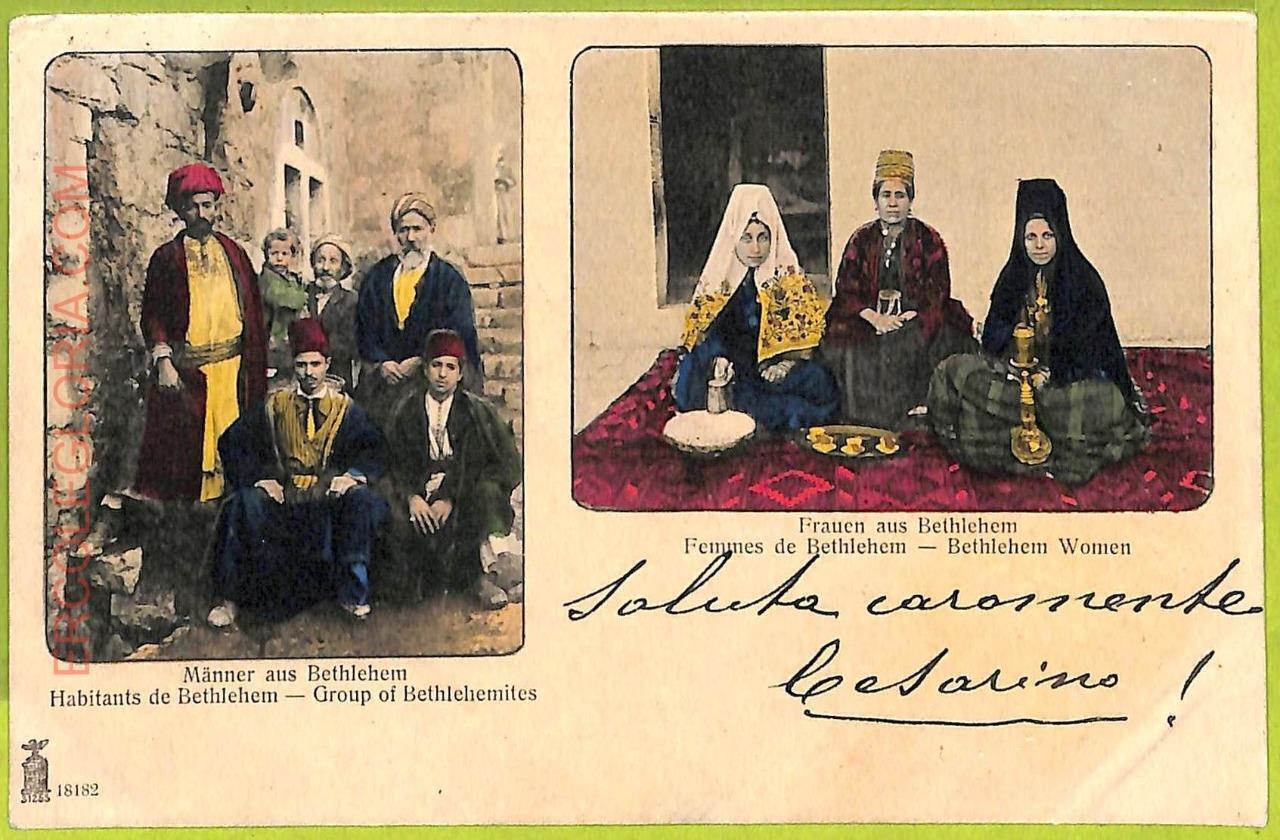 ERCOLEGLORIA.COM
Männer aus Bethlehem
Habitants de Bethlehem — Group of Bethlehemites
Frauen aus Bethlehem
Femmes de Bethlehem — Bethlehem Women
Saluta caramente
Cesarino !
31285
18182